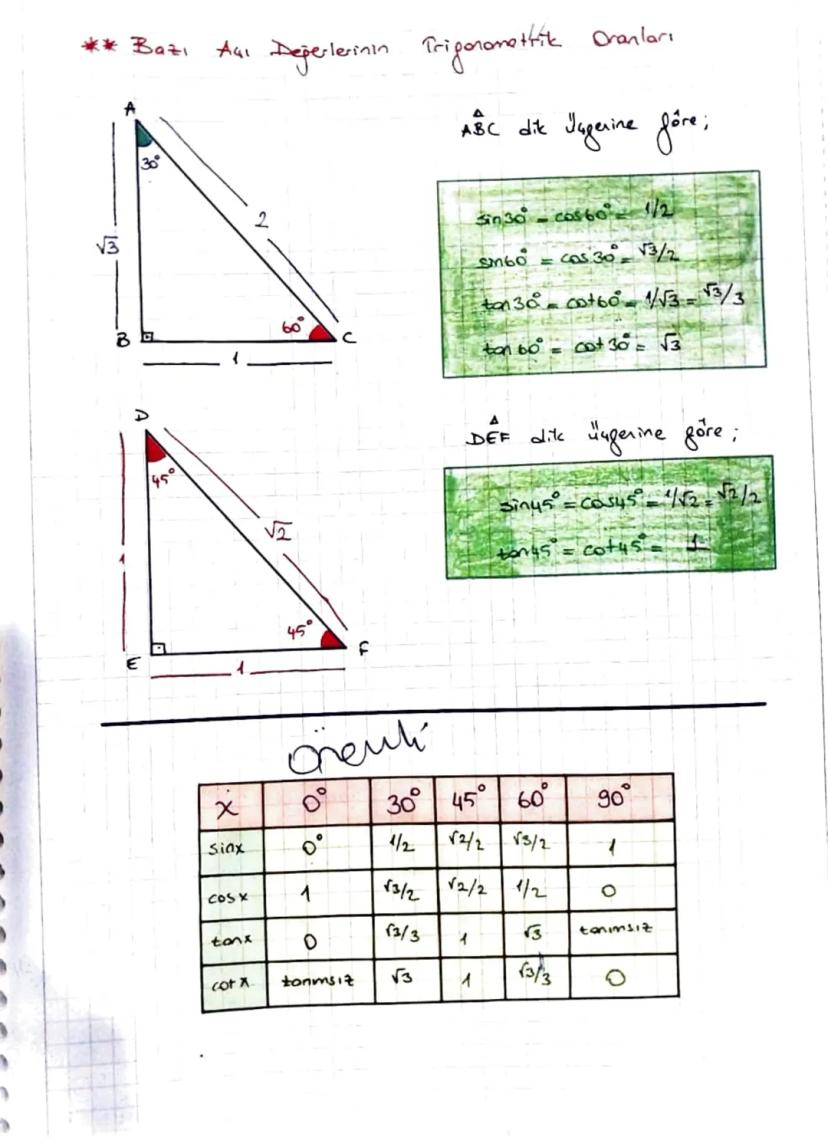 ** Bazı Açı Değerlerinin Trigonometrik Oranları
A
30°
√3
2
60°
B
C
1
ABC dik üçgenine göre;
sin30° = cos60° = 1/2
sin60° = cos30° = √3/2
tan30° = cot60° = 1/√3 = √3/3
tan60° = cot30° = √3
D
45°
√2
1
45°
E
F
1
DEF dik üçgenine göre;
sin45° = cos45° = 1/√2 = √2/2
tan45° = cot45° = 1
Önemli
x 0° 30° 45° 60° 90°
sinx 0° 1/2 √2/2 √3/2 1
cosx 1 √3/2 √2/2 1/2 0
tanx 0 √3/3 1 √3 tanımsız
cotx tanımsız √3 1 √3/3 0